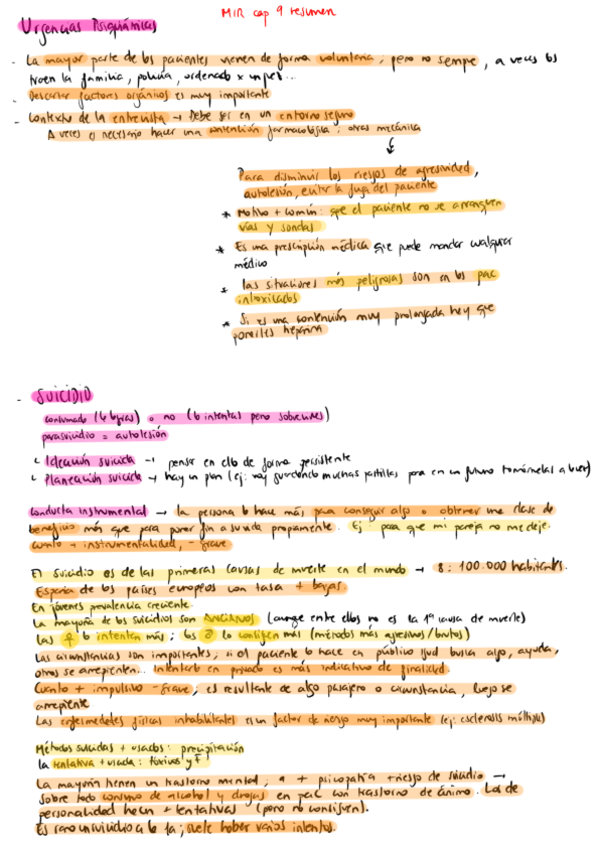 MIR cap 9 resumen
Urgencias Psiquiátricas
- La mayor parte de los pacientes vienen de forma voluntaria; pero no siempre, a veces los
traen la familia, policía, ordenado x un juez...
- Descartar factores orgánicos es muy importante
- Contexto de la entrevista → Debe ser en un entorno seguro
A veces es necesario hacer una contención farmacológica; otras mecánica
Para disminuir los riesgos de agresividad,
autolesión, evitar la fuga del paciente
* Motivo + común: que el paciente no se arranquen
vías y sondas
* Es una prescripción médica que puede mandar cualquier
médico
* las situaciones más peligrosas son en los pac
intoxicados
* Si es una contención muy prolongada hay que
ponerles heparina
- SUICIDIO
consumado (lo logras) o no (lo intentas pero sobrevives)
parasuicidio = autolesión
Ideación suicida → pensar en ello de forma persistente
Planeación suicida → hay un plan (ej: voy guardando muchas pastillas para en un futuro tomármelas a
conducta instrumental → la persona lo hace más para conseguir algo o obtener una clase de
beneficio más que para poner fin a su vida propiamente. Ej: para que mi pareja no me deje.
cuanto + instrumentalidad, - grave
El suicidio es de las primeras causas de muerte en el mundo → 8:100.000 habitantes.
España de los países europeos con tasa + bajas.
En jóvenes prevalencia creciente.
La mayoría de los suicidios son ANCIANOS (aunque entre ellos no es la 1ª causa de muerte)
Las ♀ lo intentan más; los ♂ lo consiguen más (métodos más agresivos/brutos)
Las circunstancias son importantes; si el paciente lo hace en público busca algo, ayuda,
otros se arrepienten... Intentarlo en privado es más indicativo de finalidad.
Cuanto + impulsivo - grave; es resultante de algo pasajero o circunstancia, luego se
arrepiente
Las enfermedades físicas inhabilitantes es un factor de riesgo muy importante (ej: esclerosis múltiple)
Métodos suicidas + usados: precipitación
la tentativa + usada: tóxicos y F
La mayoría tienen un trastorno mental; a + psicopatía + riesgo de suicidio →
sobre todo consumo de alcohol y drogas en pac con trastorno de ánimo. Los de
personalidad hacen + tentativas (pero no consiguen).
Es raro un suicidio a lo 1a; suele haber varios intentos.